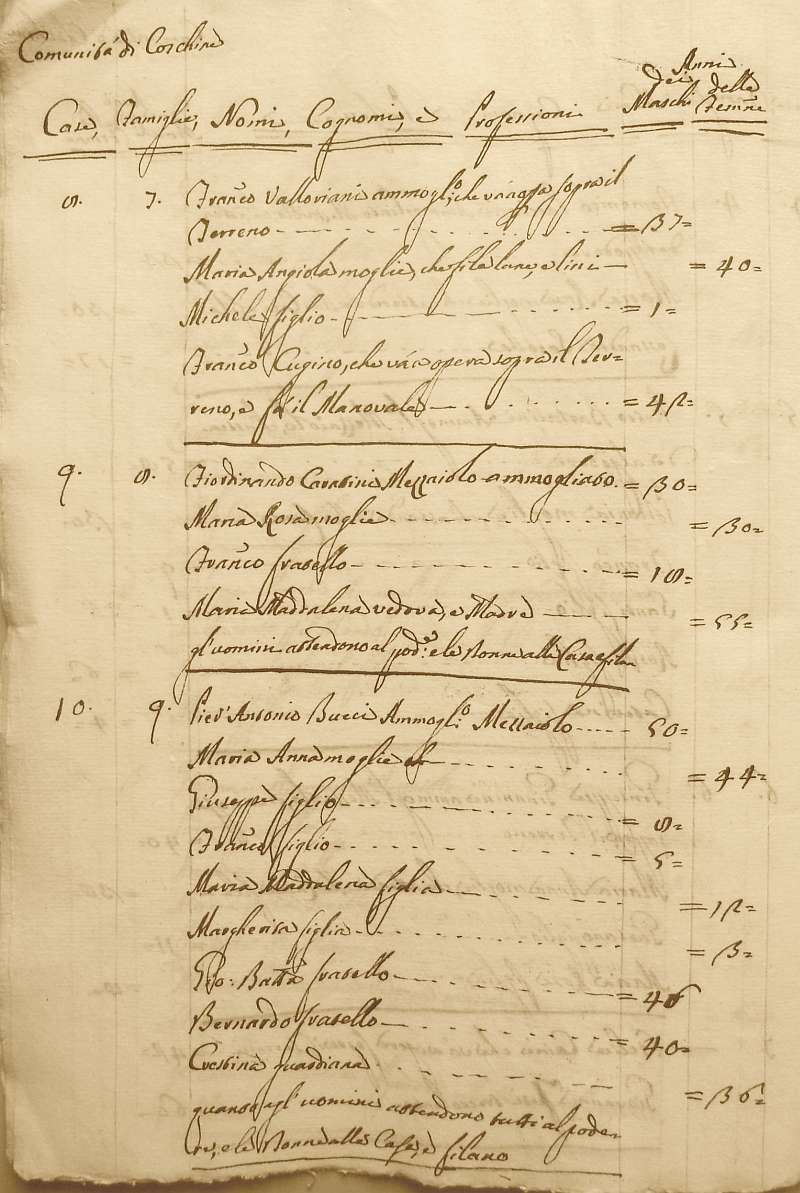 Comunità di Corchina
Anni
dei Maschi delle Femine
Case, Famiglie, Nomi, Cognomi, e Professioni
8. 7. Franco Valloriani ammogl.o, che và opa sopra il
Terreno = 37=
Maria Angiola moglie, che fila lane, e lini = 40=
Michele figlio = 1=
Franco Cugino, che và a opera sopra il Ter-
reno, e fà il Manovale = 42=
9. 8. Fiordinando Caratini Mezzaiolo ammogliato = 30=
Maria Rosa moglie = 30=
Franco fratello = 18=
Maria Maddalena vedova, e Madre = 55=
gl'uomini attendono al pod.e e le Donne alla Casa e fila
10. 9. Pier' Antonio Bucci Ammogl.o Mezzaiolo 50=
Maria Anna moglie = 44=
Giuseppe figlio = 8=
Franco figlio = 5=
Maria Maddalena figlia = 12=
Margherita figlia = 3=
Gio: Batta fratello = 46
Bernardo fratello = 40=
Crestina guardiana = 36=
quanto agl'uomini attendono tutti al pode-
re, e le Donne alle Case, e filano